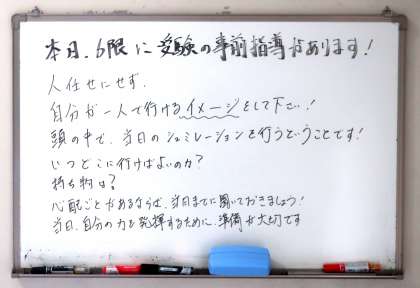 本日、6限に受験の事前指導があります!
人任せにせず、
自分が一人で行けるイメージをして下さい!
頭の中で、当日のシュミレーションを行うということです!
いつどこに行けばよいのか?
持ち物は?
心配ごとがあるならば、当日までに聞いておきましょう!
当日、自分の力を発揮するために、準備が大切です